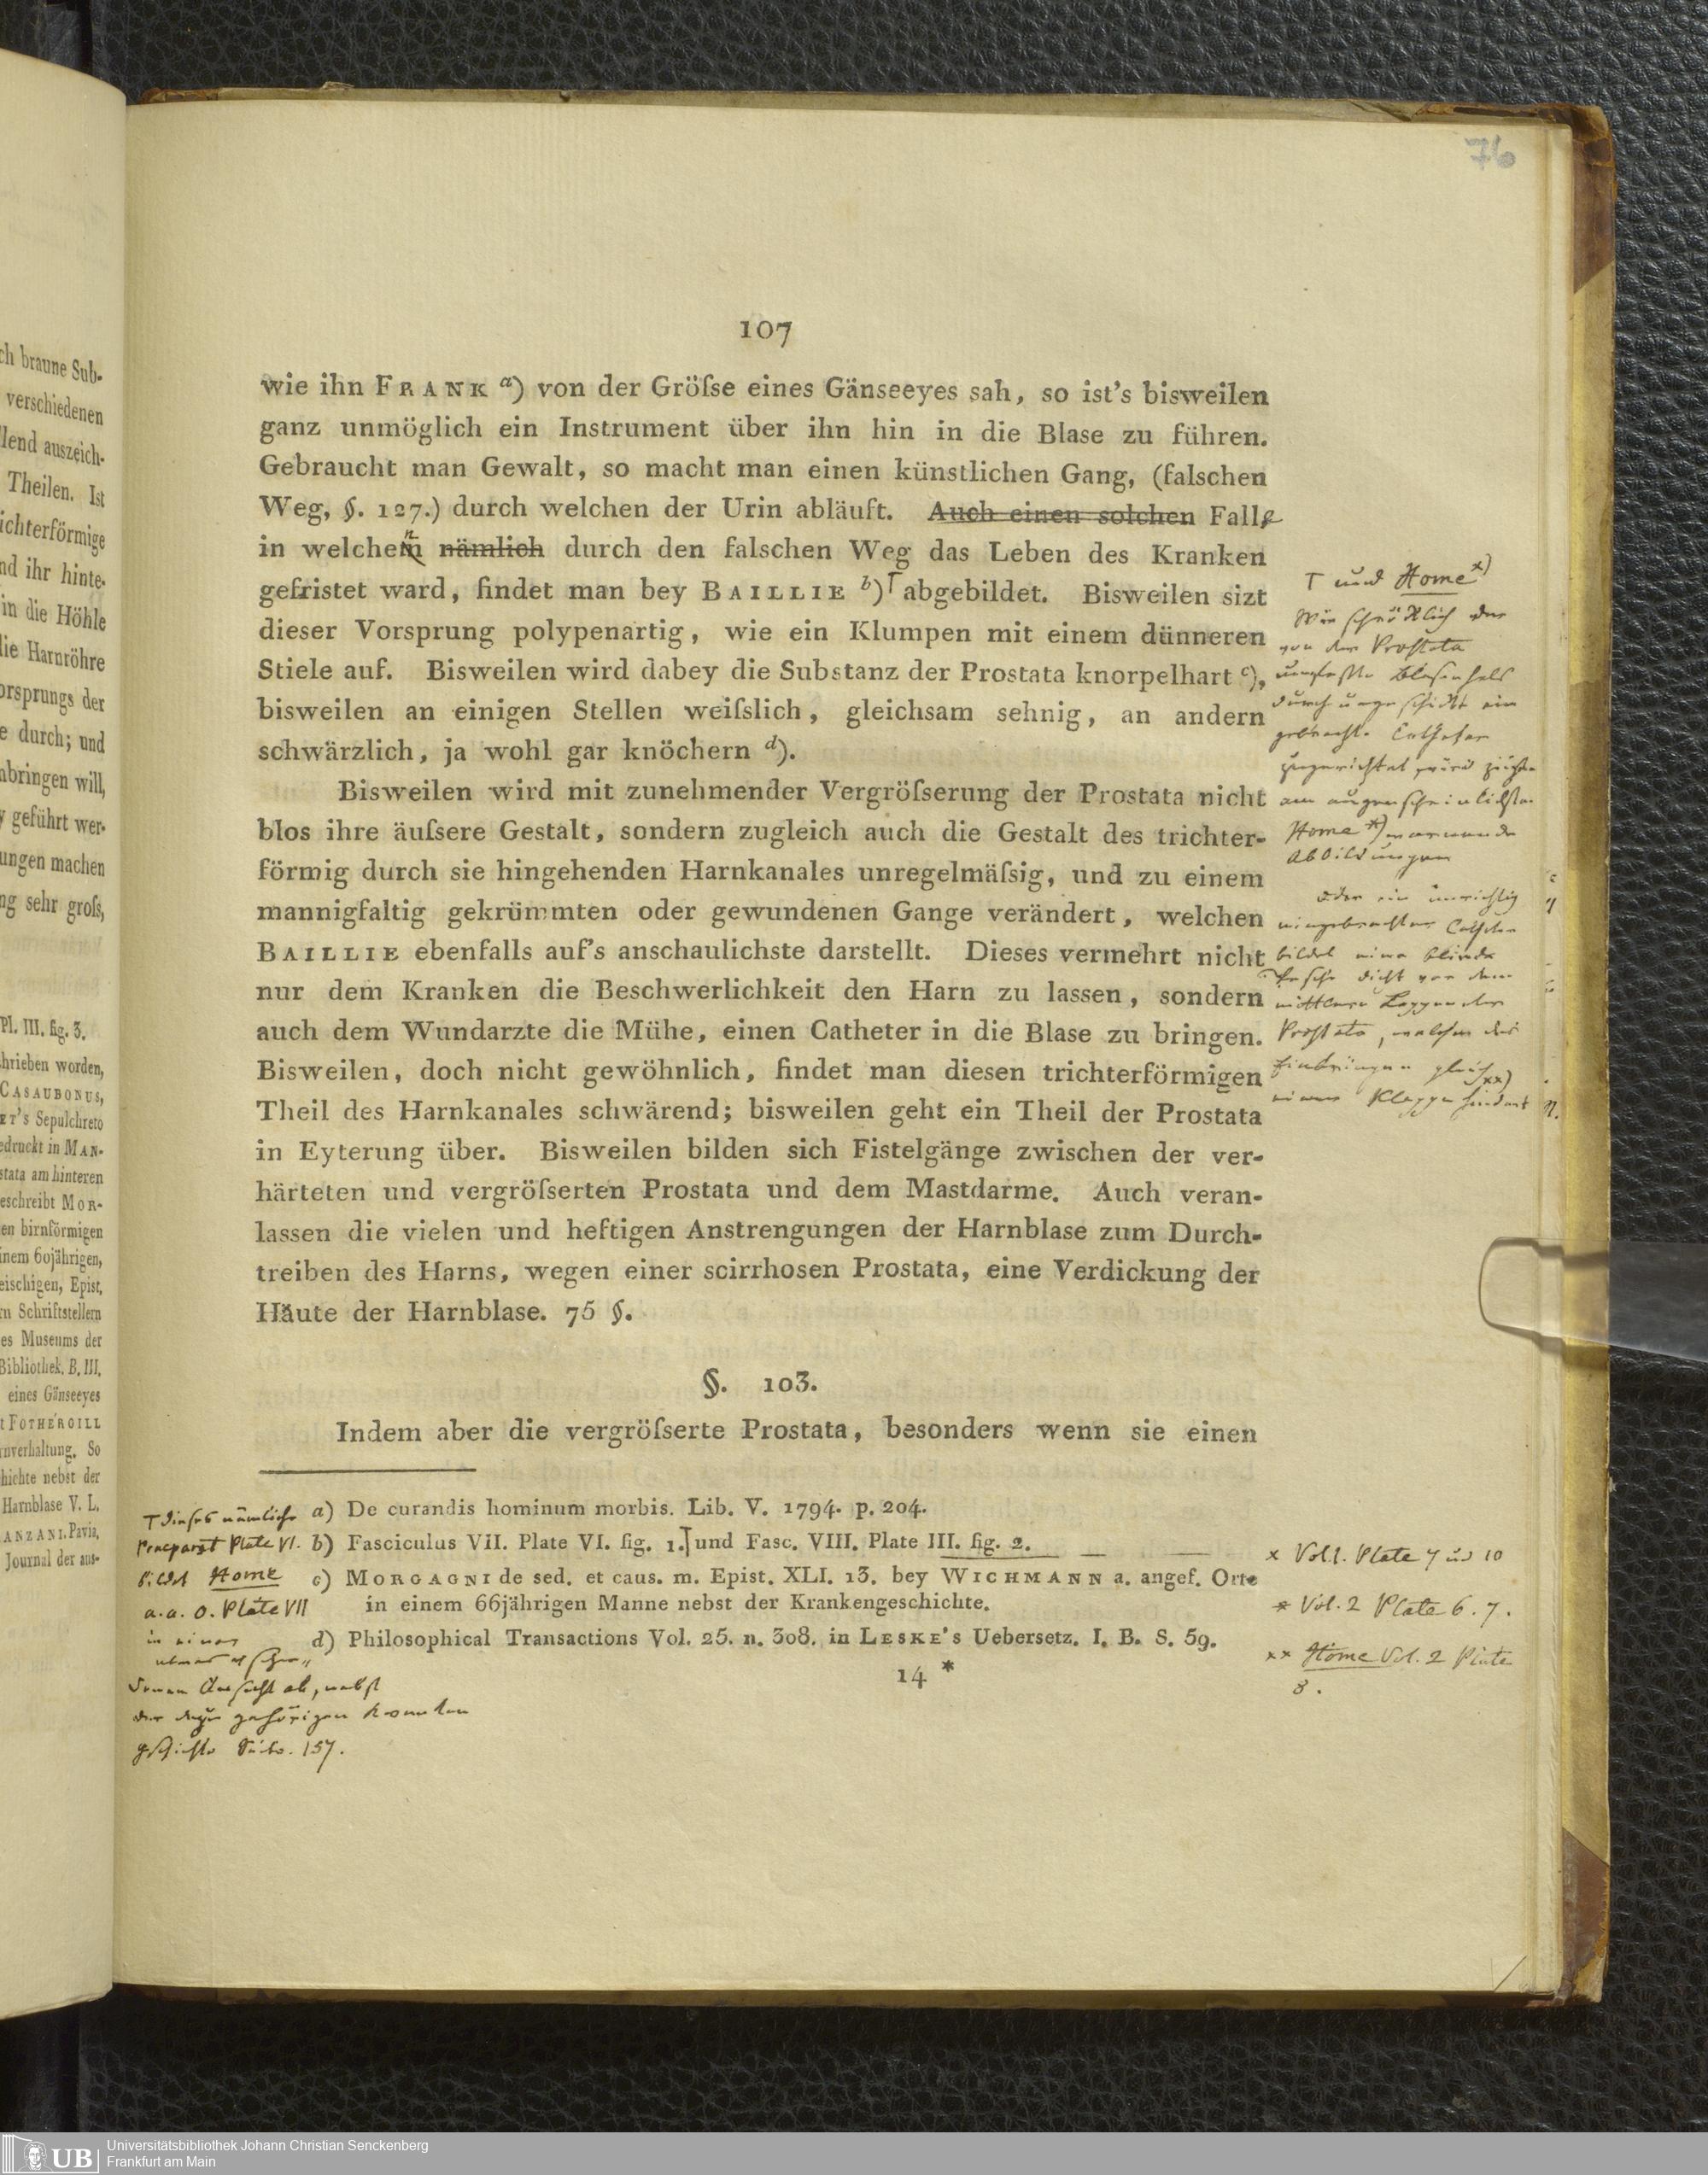 76
107
wie ihn FRANK a) von der Gröſse eines Gänseeyes sah, so ist's bisweilen
ganz unmöglich ein Instrument über ihn hin in die Blase zu führen.
Gebraucht man Gewalt, so macht man einen künstlichen Gang, (falschen
Weg, §. 127.) durch welchen der Urin abläuft. Auch einen solchen Falle
in welchem nämlich durch den falschen Weg das Leben des Kranken
gefristet ward, findet man bey BAILLIE b)⊤ abgebildet. Bisweilen sizt
dieser Vorsprung polypenartig, wie ein Klumpen mit einem dünneren
Stiele auf. Bisweilen wird dabey die Substanz der Prostata knorpelhart c),
bisweilen an einigen Stellen weiſslich, gleichsam sehnig, an andern
schwärzlich, ja wohl gar knöchern d).
Bisweilen wird mit zunehmender Vergröſserung der Prostata nicht
blos ihre äuſsere Gestalt, sondern zugleich auch die Gestalt des trichter-
förmig durch sie hingehenden Harnkanales unregelmäſsig, und zu einem
mannigfaltig gekrümmten oder gewundenen Gange verändert, welchen
BAILLIE ebenfalls auf's anschaulichste darstellt. Dieses vermehrt nicht
nur dem Kranken die Beschwerlichkeit den Harn zu lassen, sondern
auch dem Wundarzte die Mühe, einen Catheter in die Blase zu bringen.
Bisweilen, doch nicht gewöhnlich, findet man diesen trichterförmigen
Theil des Harnkanales schwärend; bisweilen geht ein Theil der Prostata
in Eyterung über. Bisweilen bilden sich Fistelgänge zwischen der ver-
härteten und vergröſserten Prostata und dem Mastdarme. Auch veran-
lassen die vielen und heftigen Anstrengungen der Harnblase zum Durch-
treiben des Harns, wegen einer scirrhosen Prostata, eine Verdickung der
Häute der Harnblase. 75 §.
§. 103.
Indem aber die vergröſserte Prostata, besonders wenn sie einen
a) De curandis hominum morbis. Lib. V. 1794. p. 204.
b) Fasciculus VII. Plate VI. fig. 1.⊤ und Fasc. VIII. Plate III. fig. 2.
c) MORGAGNI de sed. et caus. m. Epist. XLI. 13. bey WICHMANN a. angef. Orte
in einem 66jährigen Manne nebst der Krankengeschichte.
d) Philosophical Transactions Vol. 25. n. 308. in LESKE's Uebersetz. I. B. S. 59.
14 *
⊤ und Home x)
Wie schröklich der
von der Prostata
umfaßte Blasenhals
durch ungeschickt ein
gebrachte Catheter
zugerichtet wird zeigen
am augenscheinlichsten
Home *)
Abbildungen
oder ein unrichtig
eingebrachter Catheter
bildet eine blinde
Tasche dicht vor dem
mittleren Lappen der
Prostata, welcher das
Einbringen gleich
einer Klappe hindert xx)
⊤ dieses nämliche
Praeparat Plate VI.
bildet Home
a. a. O. Plate VII
in einer
etwas
Ansicht ab, nebst
der dazu gehörigen Kranken
geschichte Seite. 157.
x Vol. 1. Plate 7 und 10
* Vol. 2 Plate 6. 7.
xx Home Vol. 2 Plate
8.
ch braune Sub-
verschiedenen
lend auszeich-
Theilen. Ist
ichterförmige
nd ihr hinte-
in die Höhle
die Harnröhre
orsprungs der
e durch; und
nbringen will,
geführt wer-
ungen machen
ng sehr groſs,
Pl. III. fig. 3.
hrieben worden,
CASAUBONUS,
ET's Sepulchreto
edruckt in MAN-
stata am hinteren
eschreibt MOR-
en birnförmigen
inem 60jährigen,
eischigen, Epist.
rn Schriftstellern
es Museums der
Bibliothek. B. III.
eines Gänseeyes
t FOTHERGILL
rnverhaltung. So
hichte nebst der
Harnblase V. L.
ANZANI. Pavia,
Journal der aus-
UB
Universitätsbibliothek Johann Christian Senckenberg
Frankfurt am Main